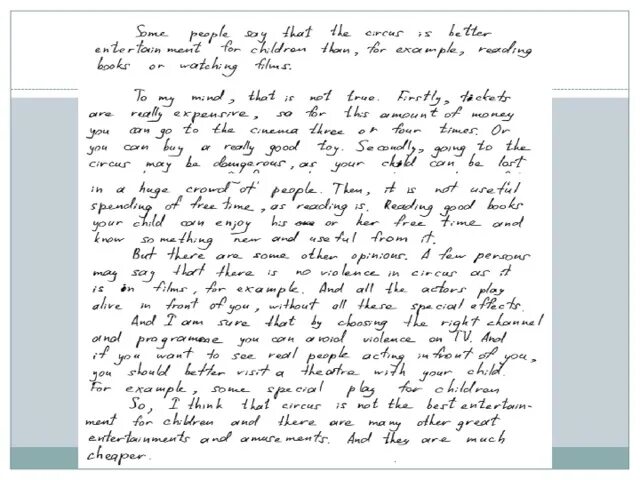 Some people say that the circus is better
entertainment for children than, for example, reading
books or watching films.
To my mind, that is not true. Firstly, tickets
are really expensive, so for this amount of money
you can go to the cinema three or four times. Or
you can buy a really good toy. Secondly, going to the
circus may be dangerous, as your child can be lost
in a huge crowd of people. Then, it is not useful
spending of free time, as reading is. Reading good books
your child can enjoy his or her free time and
know something new and useful from it.
But there are some other opinions. A few persons
may say that there is no violence in circus as it
is in films, for example. And all the actors play
alive in front of you, without all these special effects.
And I am sure that by choosing the right channel
and programme you can avoid violence on TV. And
if you want to see real people acting infront of you,
you should better visit a theatre with your child.
For example, some special play for children
So, I think that circus is not the best entertain-
ment for children and there are many other great
entertainments and amusements. And they are much
cheaper.